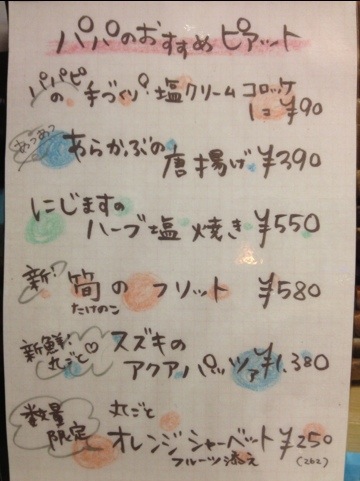 パパのおすすめ ピアット
パパピの 手づくり 塩クリーム コロッケ
1コ ¥90
あつあつ
あらかぶの
唐揚げ ¥390
にじますの
ハーブ塩 焼き ¥550
新!
筍の フリット ¥580
たけのこ
新鮮!
丸ごと♡
スズキの
アクアパッツァ ¥1,380
数量
限定
丸ごと
オレンジシャーベット ¥250
フルーツ添え (262)